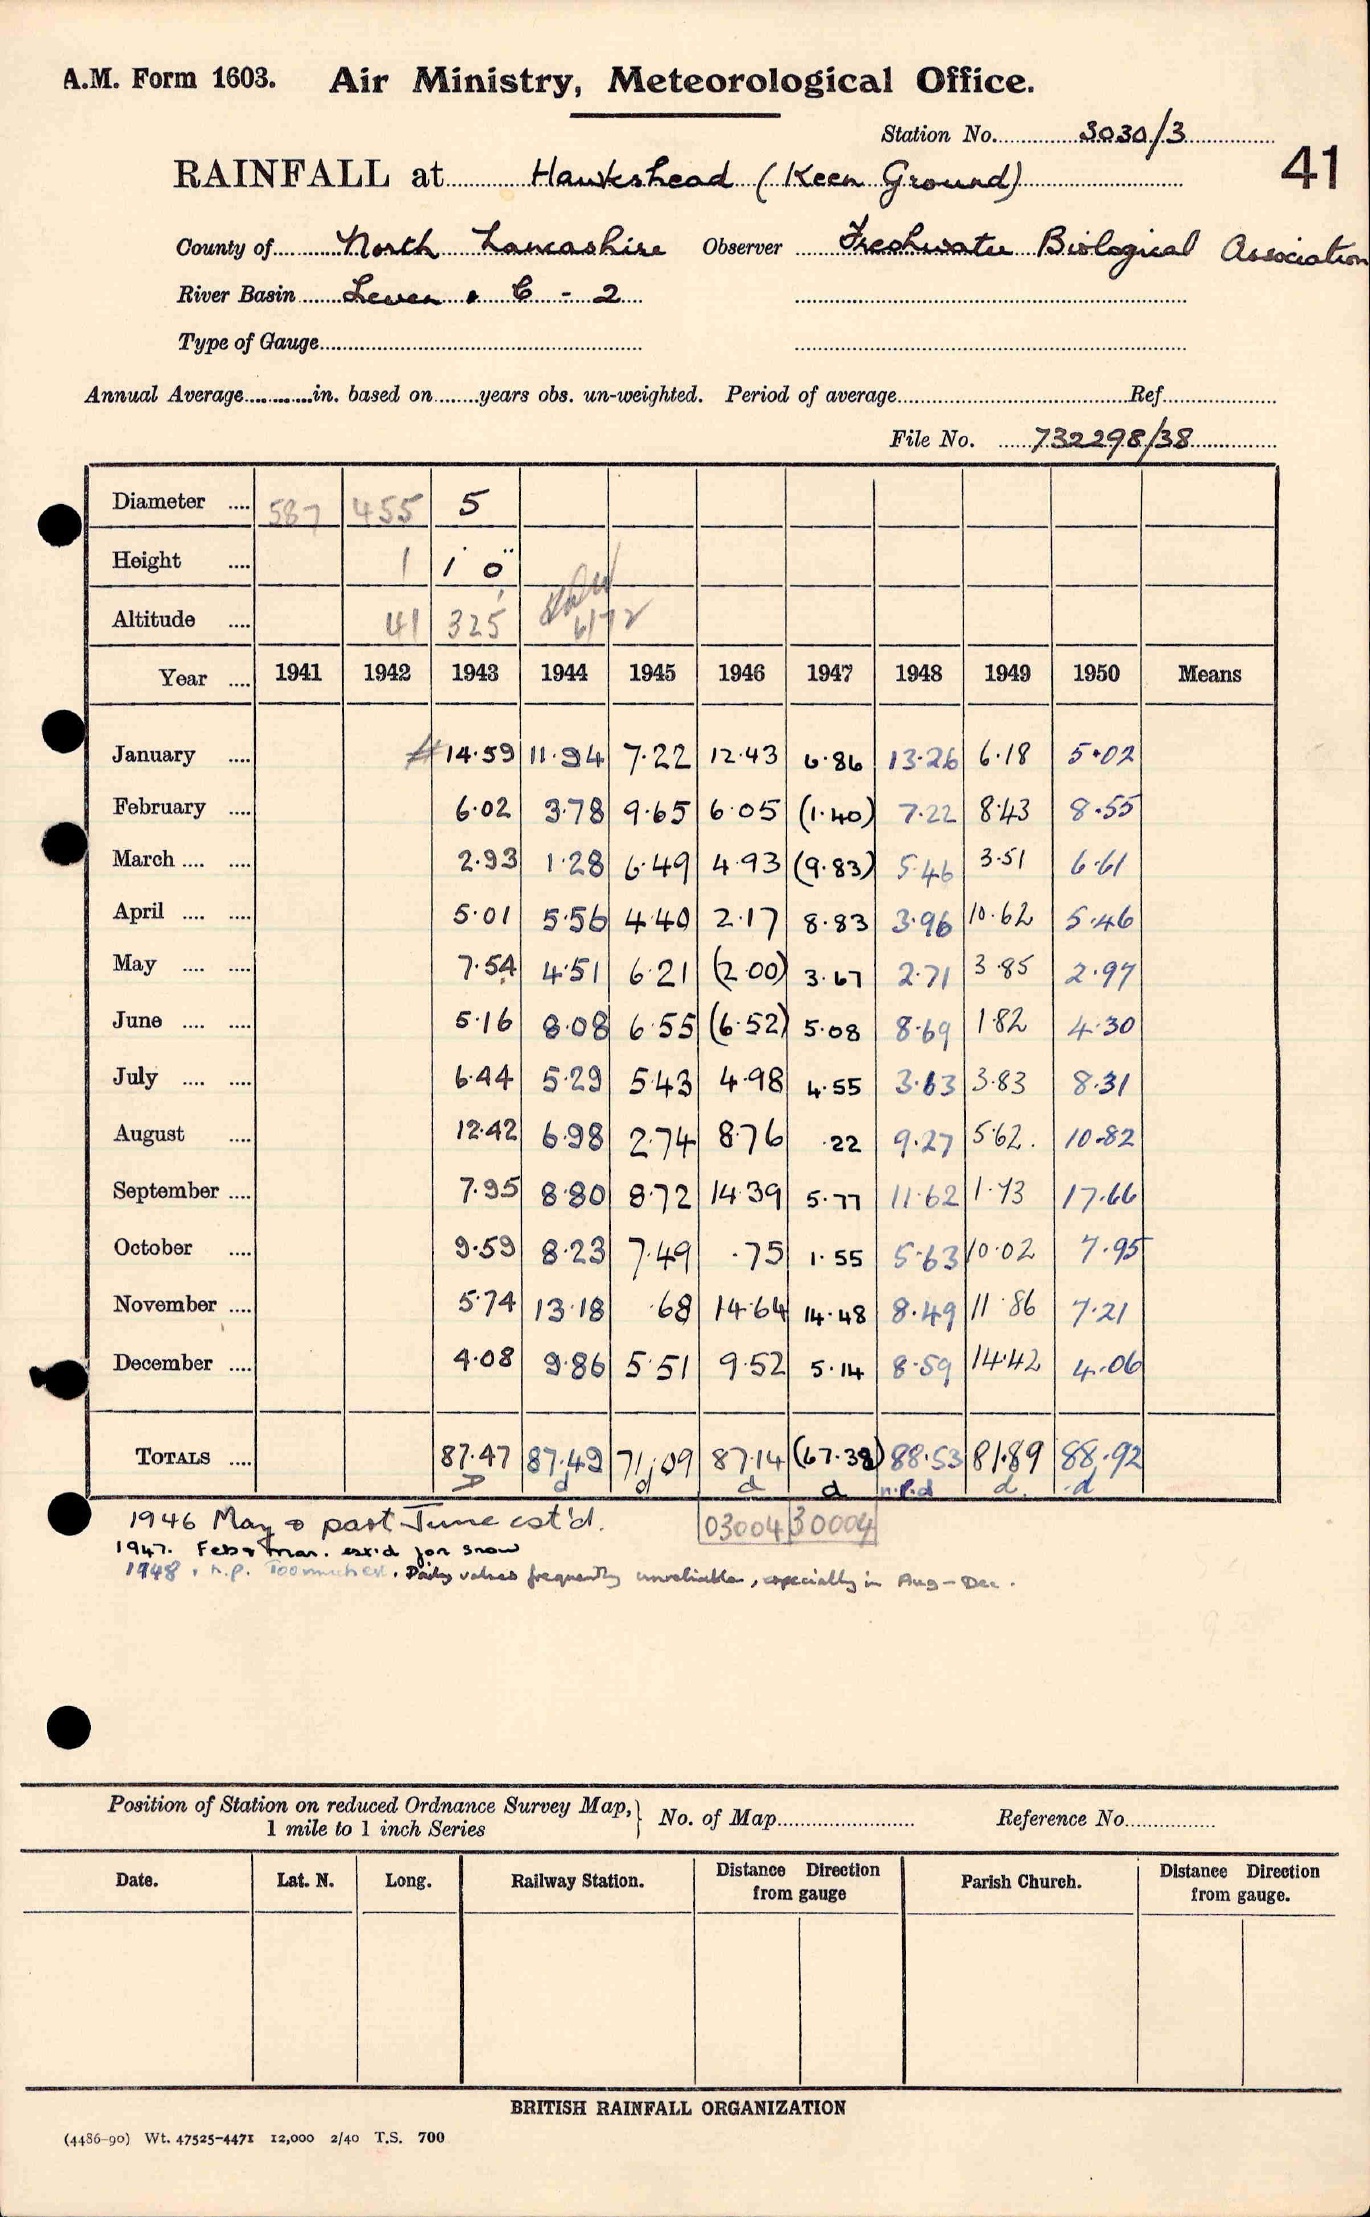 A.M. Form 1603. Air Ministry, Meteorological Office.
Station No. 3030/3
41
RAINFALL at Hawkshead (Keen Ground)
County of North Lancashire Observer Freshwater Biological Association
River Basin Leven & C - 2
Type of Gauge
Annual Average in. based on years obs. un-weighted. Period of average Ref.
File No. 732298/38
Diameter 587 455 5
Height 1 1' 0"
Altitude 41 325 6/72
Year 1941 1942 1943 1944 1945 1946 1947 1948 1949 1950 Means
January # 14.59 11.94 7.22 12.43 6.86 13.26 6.18 5.02
February 6.02 3.78 9.65 6.05 (1.40) 7.22 8.43 8.55
March 2.93 1.28 6.49 4.93 (9.83) 5.46 3.51 6.61
April 5.01 5.56 4.40 2.17 8.83 3.96 10.62 5.46
May 7.54 4.51 6.21 (2.00) 3.67 2.71 3.85 2.97
June 5.16 8.08 6.55 (6.52) 5.08 8.69 1.82 4.30
July 6.44 5.29 5.43 4.98 4.55 3.63 3.83 8.31
August 12.42 6.98 2.74 8.76 .22 9.27 5.62. 10.82
September 7.95 8.80 8.72 14.39 5.77 11.62 1.73 17.66
October 9.59 8.23 7.49 .75 1.55 5.63 10.02 7.95
November 5.74 13.18 .68 14.64 14.48 8.49 11.86 7.21
December 4.08 9.86 5.51 9.52 5.14 8.59 14.42 4.06
TOTALS 87.47 87.49 71.09 87.14 (67.38) 88.53 81.89 88.92
> d d d d n.p.d d. d
1946 May & part June est'd. 03004 30004
1947. Feb & Mar. est'd for snow
1948. n.p. Too much est. Daily values frequently unreliable, especially in Aug-Dec.
Position of Station on reduced Ordnance Survey Map, } No. of Map Reference No.
1 mile to 1 inch Series
Date. Lat. N. Long. Railway Station. Distance Direction from gauge Parish Church. Distance Direction from gauge.
BRITISH RAINFALL ORGANIZATION
(4486-90) Wt. 47525-4471 12,000 2/40 T.S. 700